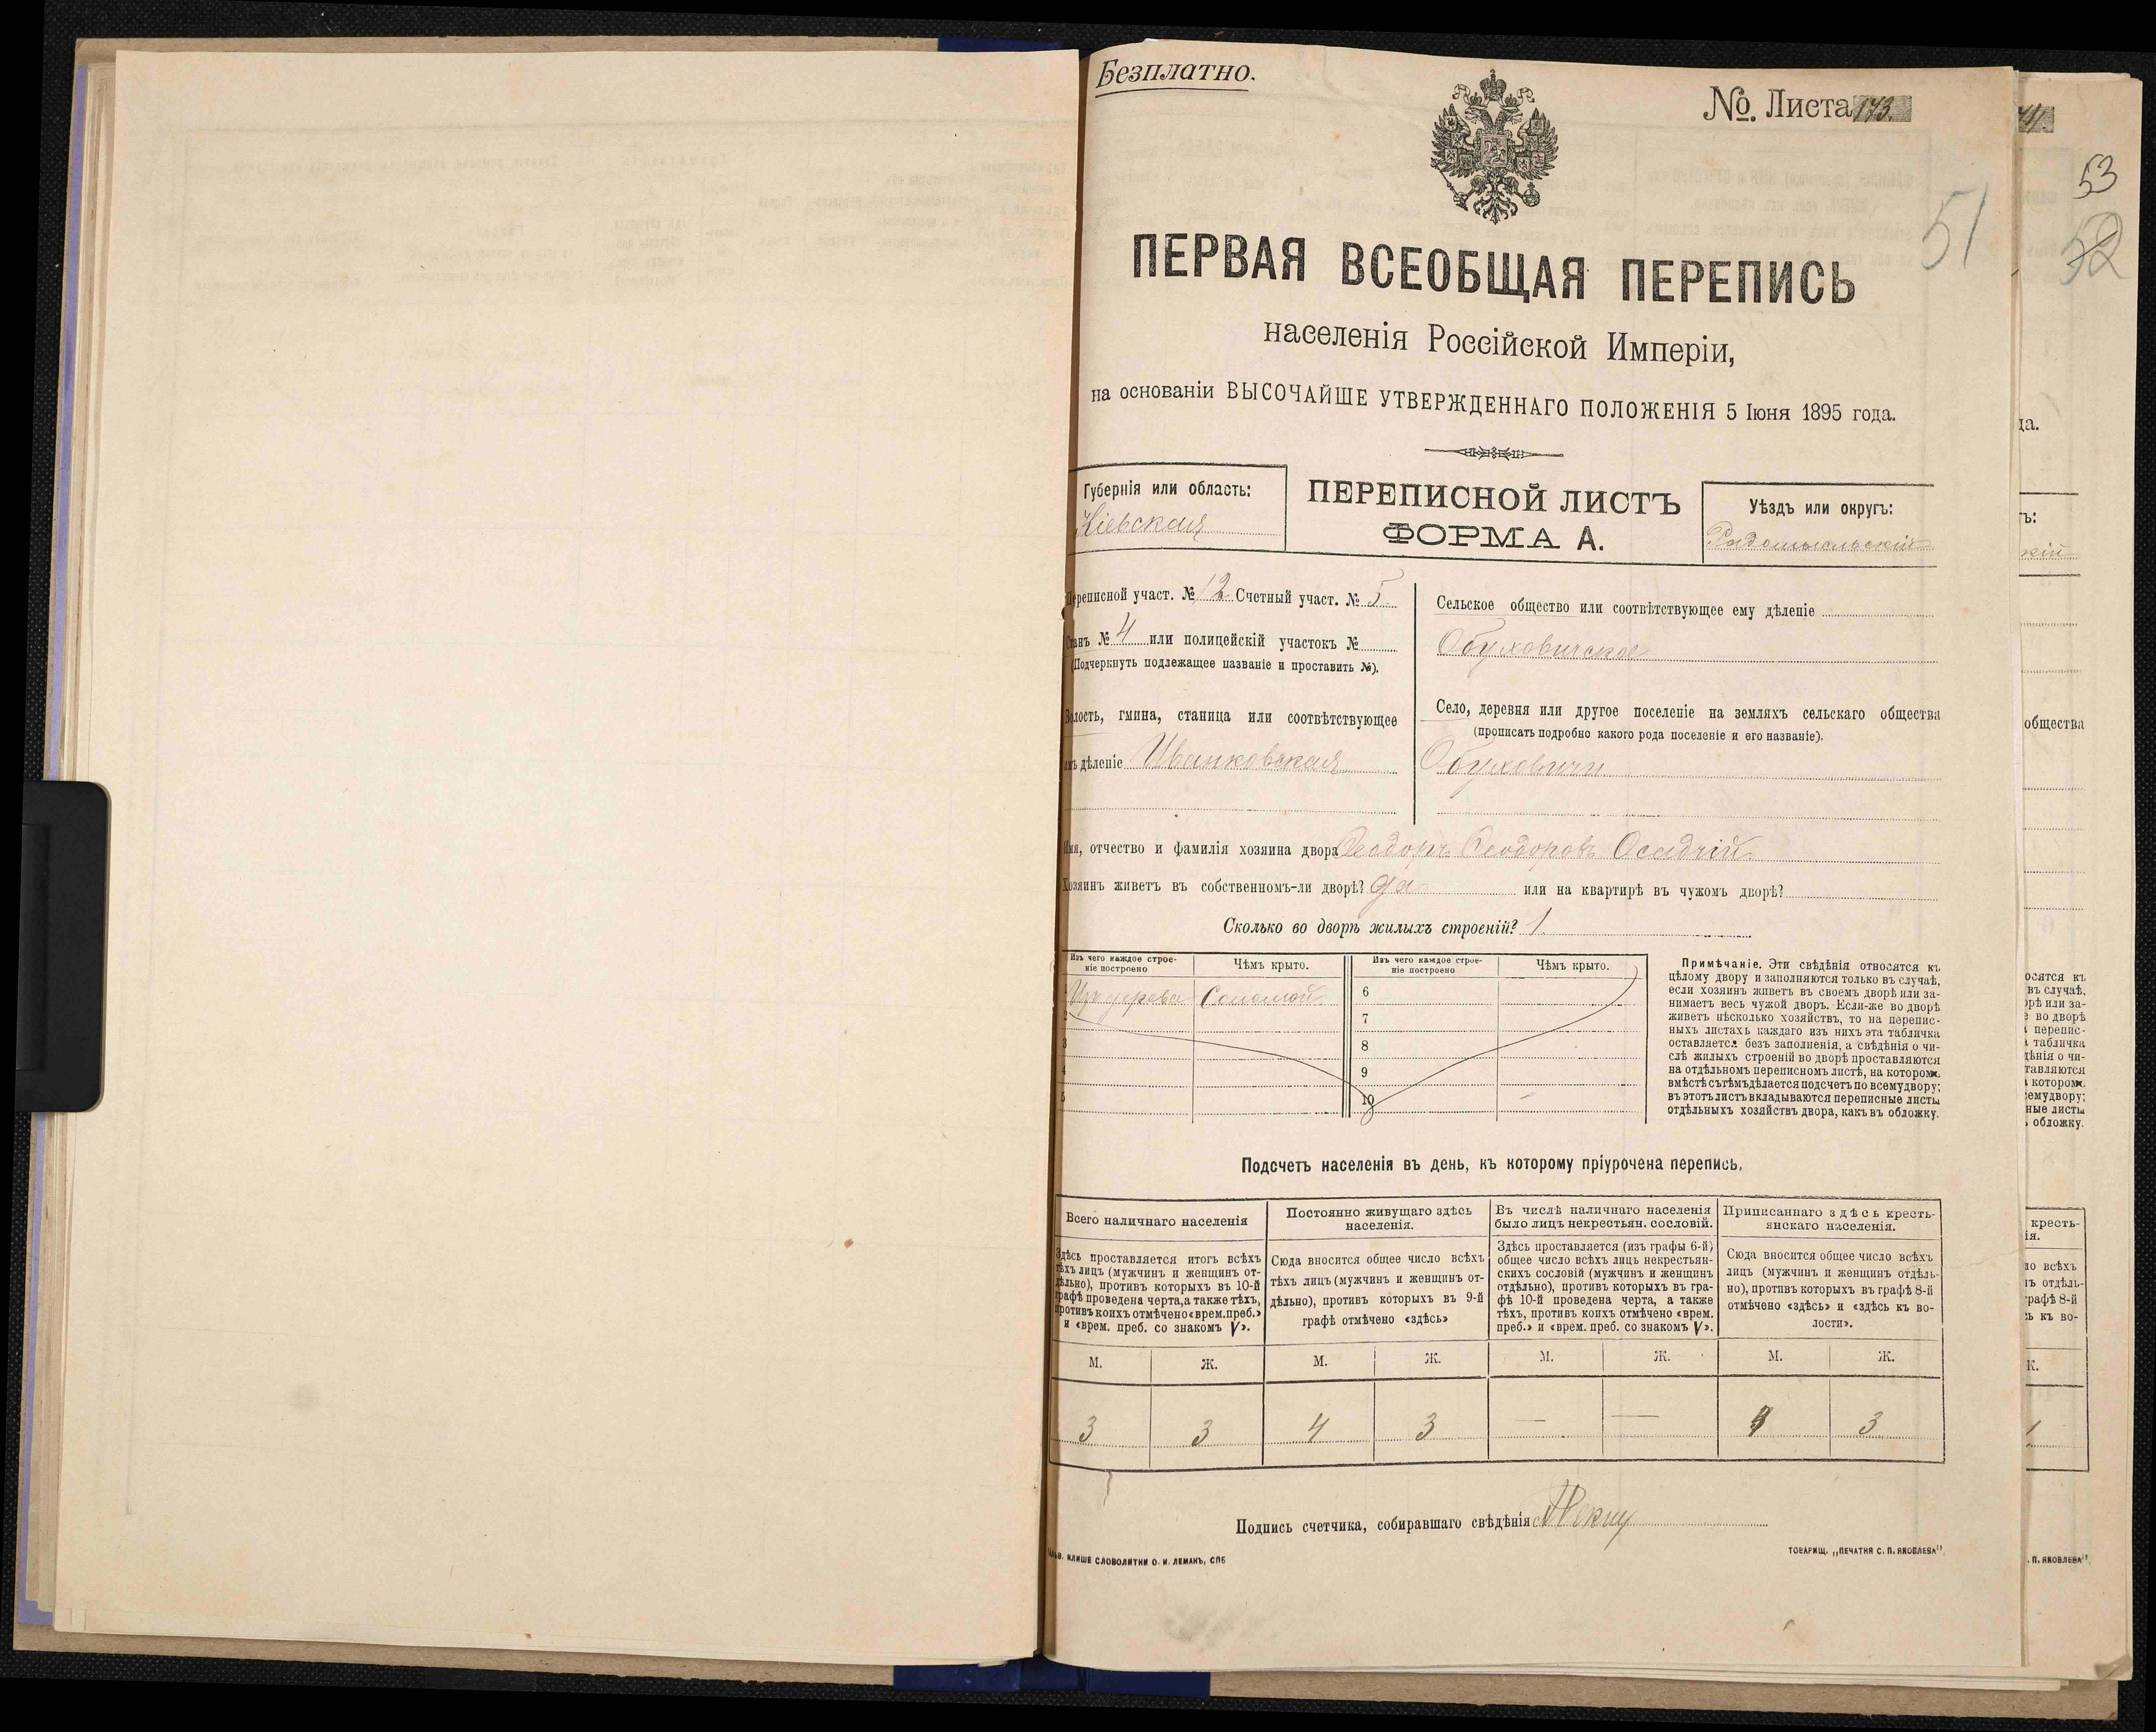 Безплатно.
№. Листа 143.
51
53
52
ПЕРВАЯ ВСЕОБЩАЯ ПЕРЕПИСЬ
населенія Россійской Имперіи,
на основаніи ВЫСОЧАЙШЕ УТВЕРЖДЕННАГО ПОЛОЖЕНІЯ 5 Іюня 1895 года.
Губернія или область:
Кіевская
ПЕРЕПИСНОЙ ЛИСТЪ
ФОРМА А.
Уѣздъ или округъ:
Радомысльскій
Переписной участ. № 12 Счетный участ. № 5
Станъ № 4 или полицейскій участокъ №
(Подчеркнуть подлежащее названіе и проставить №).
Волость, гмина, станица или соотвѣтствующее
имъ дѣленіе Иванковская
Сельское общество или соотвѣтствующее ему дѣленіе
Обуховичское
Село, деревня или другое поселеніе на земляхъ сельскаго общества
(прописать подробно какого рода поселеніе и его названіе).
Обуховичи
Имя, отчество и фамилія хозяина двора Феодоръ Феодоровъ Осадчій
Хозяинъ живетъ въ собственномъ-ли дворѣ? да или на квартирѣ въ чужомъ дворѣ?
Сколько во дворѣ жилыхъ строеній? 1.
Изъ чего каждое строе-
ніе построено
Чѣмъ крыто.
Изъ чего каждое строе-
ніе построено
Чѣмъ крыто.
Изъ дерева Соломой
2
3
4
5
6
7
8
9
10
Примѣчаніе. Эти свѣдѣнія относятся къ
цѣлому двору и заполняются только въ случаѣ,
если хозяинъ живетъ въ своемъ дворѣ или за-
нимаетъ весь чужой дворъ. Если-же во дворѣ
живетъ нѣсколько хозяйствъ, то на перепис-
ныхъ листахъ каждаго изъ нихъ эта табличка
оставляется безъ заполненія, а свѣдѣнія о чи-
слѣ жилыхъ строеній во дворѣ проставляются
на отдѣльномъ переписномъ листѣ, на которомъ
вмѣстѣ съ тѣмъ дѣлается подсчетъ по всему двору;
въ этотъ листъ вкладываются переписные листы
отдѣльныхъ хозяйствъ двора, какъ въ обложку.
Подсчетъ населенія въ день, къ которому пріурочена перепись.
Всего наличнаго населенія
Здѣсь проставляется итогъ всѣхъ
тѣхъ лицъ (мужчинъ и женщинъ от-
дѣльно), противъ которыхъ въ 10-й
графѣ проведена черта, а также тѣхъ,
противъ коихъ отмѣчено «врем. преб.»
и «врем. преб. со знакомъ V».
Постоянно живущаго здѣсь
населенія.
Сюда вносится общее число всѣхъ
тѣхъ лицъ (мужчинъ и женщинъ от-
дѣльно), противъ которыхъ въ 9-й
графѣ отмѣчено «здѣсь»
Въ числѣ наличнаго населенія
было лицъ некрестьян. сословій.
Здѣсь проставляется (изъ графы 6-й)
общее число всѣхъ лицъ некрестьян-
скихъ сословій (мужчинъ и женщинъ
отдѣльно), противъ которыхъ въ гра-
фѣ 10-й проведена черта, а также
тѣхъ, противъ коихъ отмѣчено «врем.
преб.» и «врем. преб. со знакомъ V».
Приписаннаго здѣсь кресть-
янскаго населенія.
Сюда вносится общее число всѣхъ
лицъ (мужчинъ и женщинъ отдѣль-
но), противъ которыхъ въ графѣ 8-й
отмѣчено «здѣсь» и «здѣсь къ во-
лости».
М. Ж. М. Ж. М. Ж. М. Ж.
3 3 4 3 — — 4 3
Подпись счетчика, собиравшаго свѣдѣнія
КЛИШЕ СЛОВОЛИТНИ О. И. ЛЕМАНЪ, СПБ
ТОВАРИЩ. „ПЕЧАТНЯ С. П. ЯКОВЛЕВА".